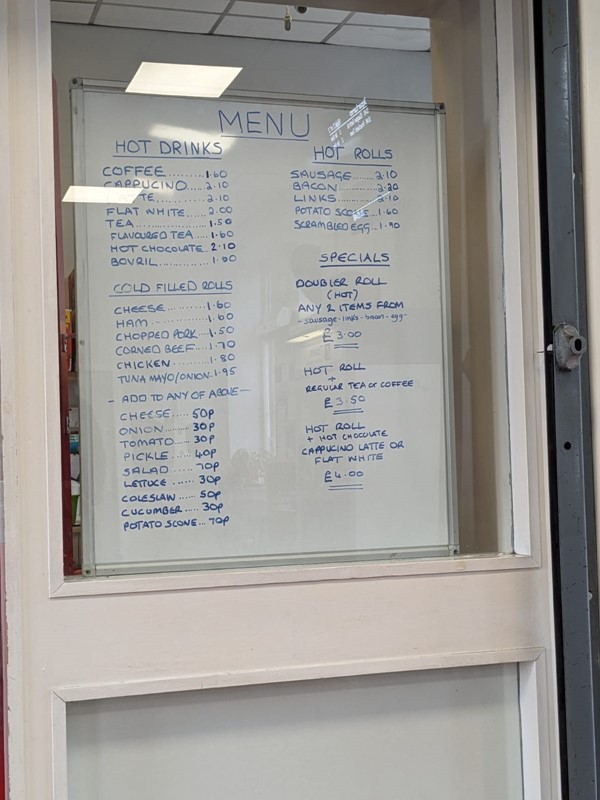 MENU
HOT DRINKS
COFFEE.......... 1.60
CAPPUCINO.... 2.10
TE............ 2.10
FLAT WHITE...... 2.00
TEA................ 1.50
FLAVOURED TEA.. 1.60
HOT CHOCOLATE.. 2.10
BOVRIL............
COLD FILLED ROLLS
CHEESE....... 1.60
HAM............ 1.60
CHOPPED PORK.. 1.50
CORNED BEEF... 1.70
CHICKEN........ 1.80
TUNA MAYO/ONION. 1.95
- ADD TO ANY OF ABOVE -
CHEESE..... 50p
ONION......... 30p
TOMATO...... 30p
PICKLE...... 40p
SALAD..... 70p
LETTUCE...... 30p
COLESLAW..... 50p
CUCUMBER.... 30p
POTATO SCONE... 70p
HOT ROLLS
SAUSAGE....... 2.10
BACON......... 2.20
LINKS......... 2.10
POTATO SCONES... 1.60
SCRAMBLED EGG..
SPECIALS
DOUBLER ROLL
(HOT)
ANY 2 ITEMS FROM
- sausage - links - bacon - egg -
£3.00
HOT ROLL
+
REGULAR TEA OR COFFEE
£3.50
HOT ROLL
+ HOT CHOCOLATE
CAPPUCINO LATTE OR
FLAT WHITE
£4.00